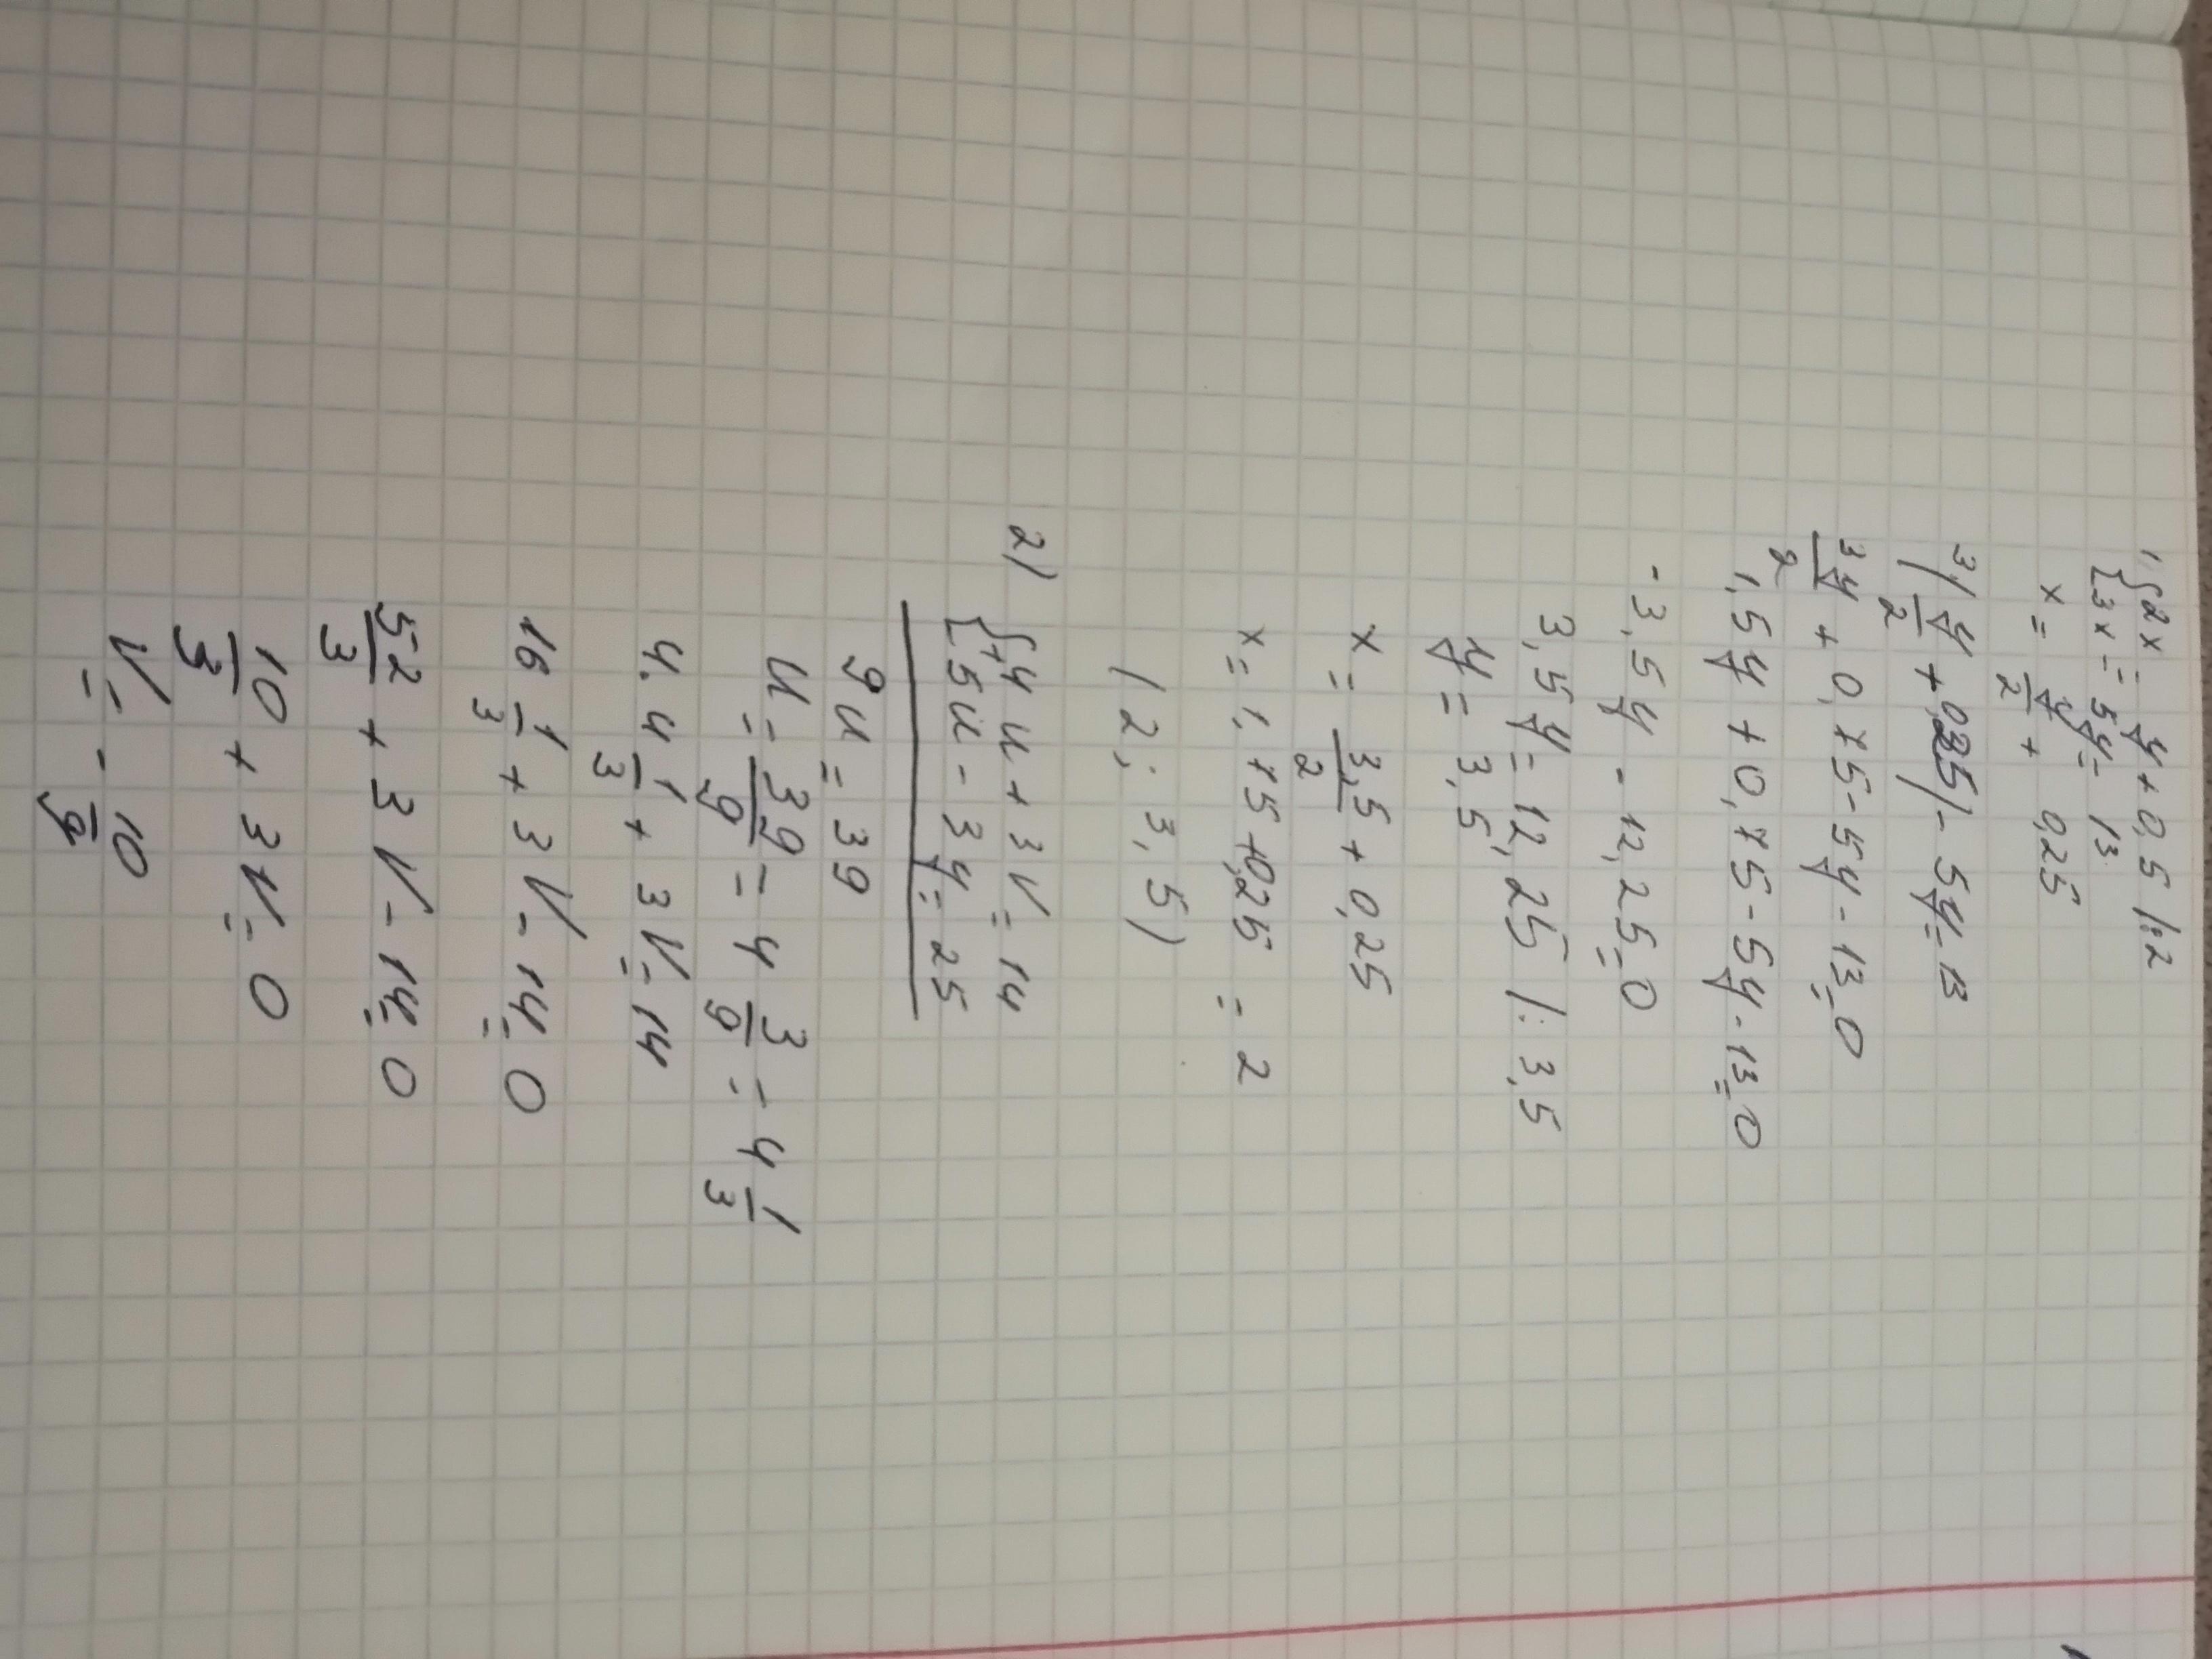 1) {2x = y + 0,5 |:2
{3x - 5y = 13
x = y/2 + 0,25
3(y/2 + 0,25) - 5y = 13
3y/2 + 0,75 - 5y - 13 = 0
1,5y + 0,75 - 5y - 13 = 0
-3,5y - 12,25 = 0
3,5y = 12,25 |: 3,5
y = 3,5
x = 3,5/2 + 0,25
x = 1,75 + 0,25 = 2
(2; 3,5)
2) {4u + 3V = 14
+ {5u - 3y = 25
9u = 39
u = 39/9 = 4 3/9 = 4 1/3
4 · 4 1/3 + 3V = 14
16 1/3 + 3V - 14 = 0
52/3 + 3V - 14 = 0
10/3 + 3V = 0
V = - 10/9